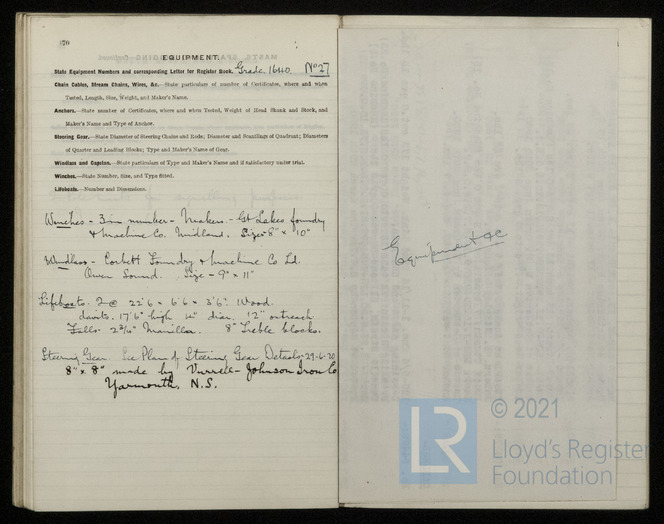 270
EQUIPMENT.
State Equipment Numbers and corresponding Letter for Register Book. Grade. 1640. No 27
Chain Cables, Stream Chains, Wires, &c.—State particulars of number of Certificates, where and when
Tested, Length, Size, Weight, and Maker's Name.
Anchors.—State number of Certificates, where and when Tested, Weight of Head Shank and Stock, and
Maker's Name and Type of Anchor.
Steering Gear.—State Diameter of Steering Chains and Rods; Diameter and Scantlings of Quadrant; Diameters
of Quarter and Leading Blocks; Type and Maker's Name of Gear.
Windlass and Capstan.—State particulars of Type and Maker's Name and if satisfactory under trial.
Winches.—State Number, Size, and Type fitted.
Lifeboats.—Number and Dimensions.
Winches - 3 in number - Makers - Gt Lakes foundry
& Machine Co. Midland. Size 8" x 10"
Windlass - Corbett Foundry & Machine Co Ld.
Owen Sound. Size - 9" x 11"
Lifeboats. 2 @ 22'6 x 6'6 x 3'6". Wood.
davits. 17'6" high diar. 12" outreach
Falls. Manilla. 8" Treble blocks.
Steering Gear. See Plan of Steering Gear Details 29-6-20
8" x 8" made by Burrell-Johnson Iron Co
Yarmouth, N.S.
Equipment &c
© 2021
LR
Lloyd's Register
Foundation